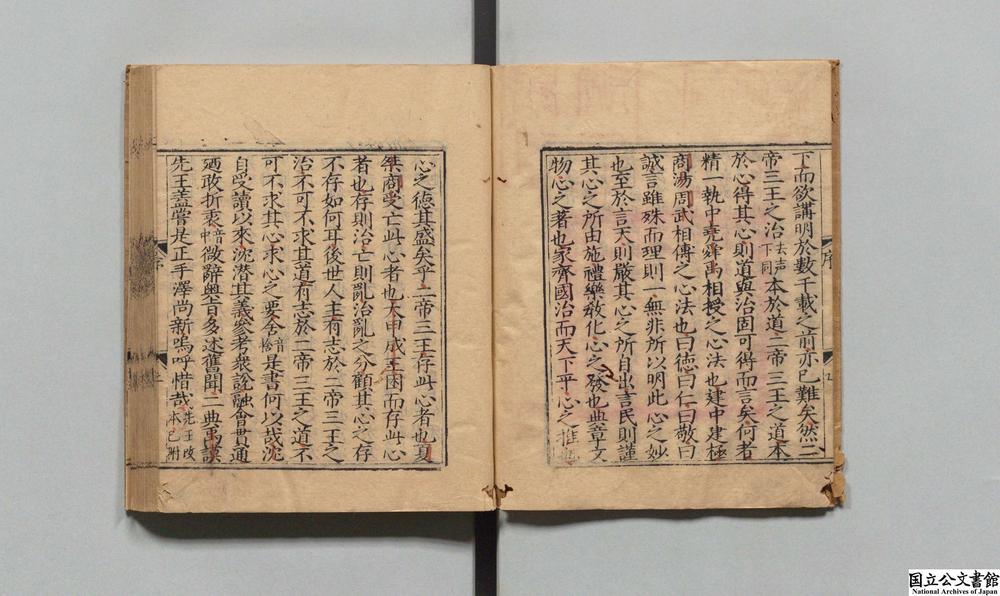 下而欲講明於數千載之前亦已難矣然二
帝三王之治去声下同本於道二帝三王之道本
於心得其心則道與治固可得而言矣何者
精一執中堯舜禹相授之心法也建中建極
商湯周武相傳之心法也曰德曰仁曰敬曰
誠言雖殊而理則一無非所以明此心之妙
也至於言天則嚴其心之所自出言民則謹
其心之所由施禮樂教化心之發也典章文
物心之著也家齊國治而天下平心之推也
心之德其盛矣乎二帝三王存此心者也夏
桀商受亡此心者也太甲成王困而存此心
者也存則治亡則亂治亂之分顧其心之存
不存如何耳後世人主有志於二帝三王之
治不可不求其道有志於二帝三王之道不
可不求其心求心之要舍音捨是書何以哉沈
自受讀以來沈潜其義參考衆說融會貫通
廼敢折衷音中微辭奧旨多述舊聞二典禹謨
先生蓋嘗是正手澤尚新嗚呼惜哉先生改本已附
序
国立公文書館
National Archives of Japan